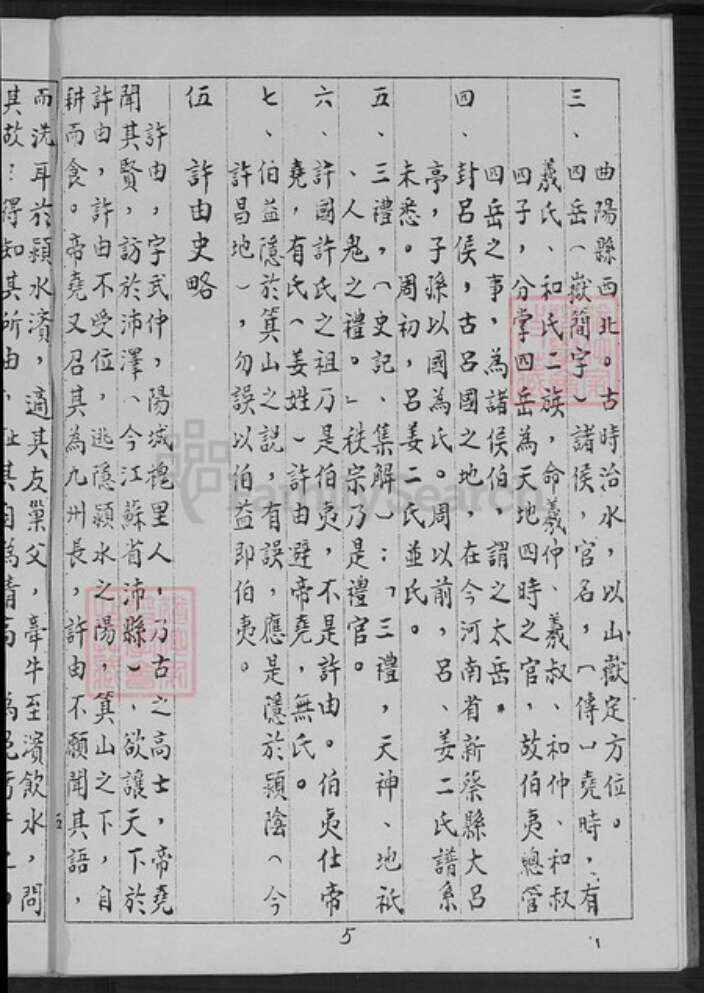 曲陽縣西北。古時治水，以山嶽定方位。
三、四岳（嶽簡字）諸侯，官名，（傳曰堯時，有
羲氏、和氏二族，命羲仲、羲叔、和仲、和叔
四子，分掌四岳為天地四時之官，故伯夷總管
四岳之事，為諸侯伯，謂之太岳。
四、封呂侯，古呂國之地，在今河南省新蔡縣大呂
亭，子孫以國為氏。周以前，呂、姜二氏譜系
未悉。周初，呂姜二氏並氏。
五、三禮，（史記、集解）：「三禮，天神、地祇
、人鬼之禮。」秩宗乃是禮官。
六、許國許氏之祖乃是伯夷，不是許由。伯夷仕帝
堯，有氏（姜姓）許由避帝堯，無氏。
七、伯益隱於箕山之說，有誤，應是隱於潁陰（今
許昌地），勿誤以伯益即伯夷。
伍 許由史略
許由，字武仲，陽城槐里人，乃古之高士，帝堯
聞其賢，訪於沛澤（今江蘇省沛縣），欲讓天下於
許由，許由不受位，逃隱潁水之陽，箕山之下，自
耕而食。帝堯又召其為九州長，許由不願聞其語，
而洗耳於潁水濱，適其友巢父，牽牛至濱飲水，問
其故：得知其所由，
5
五
FamilySearch